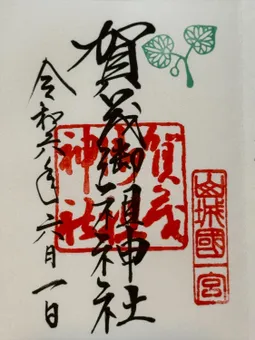 賀茂御祖神社
令和六年六月一日
賀茂御祖神社
山城國一宮